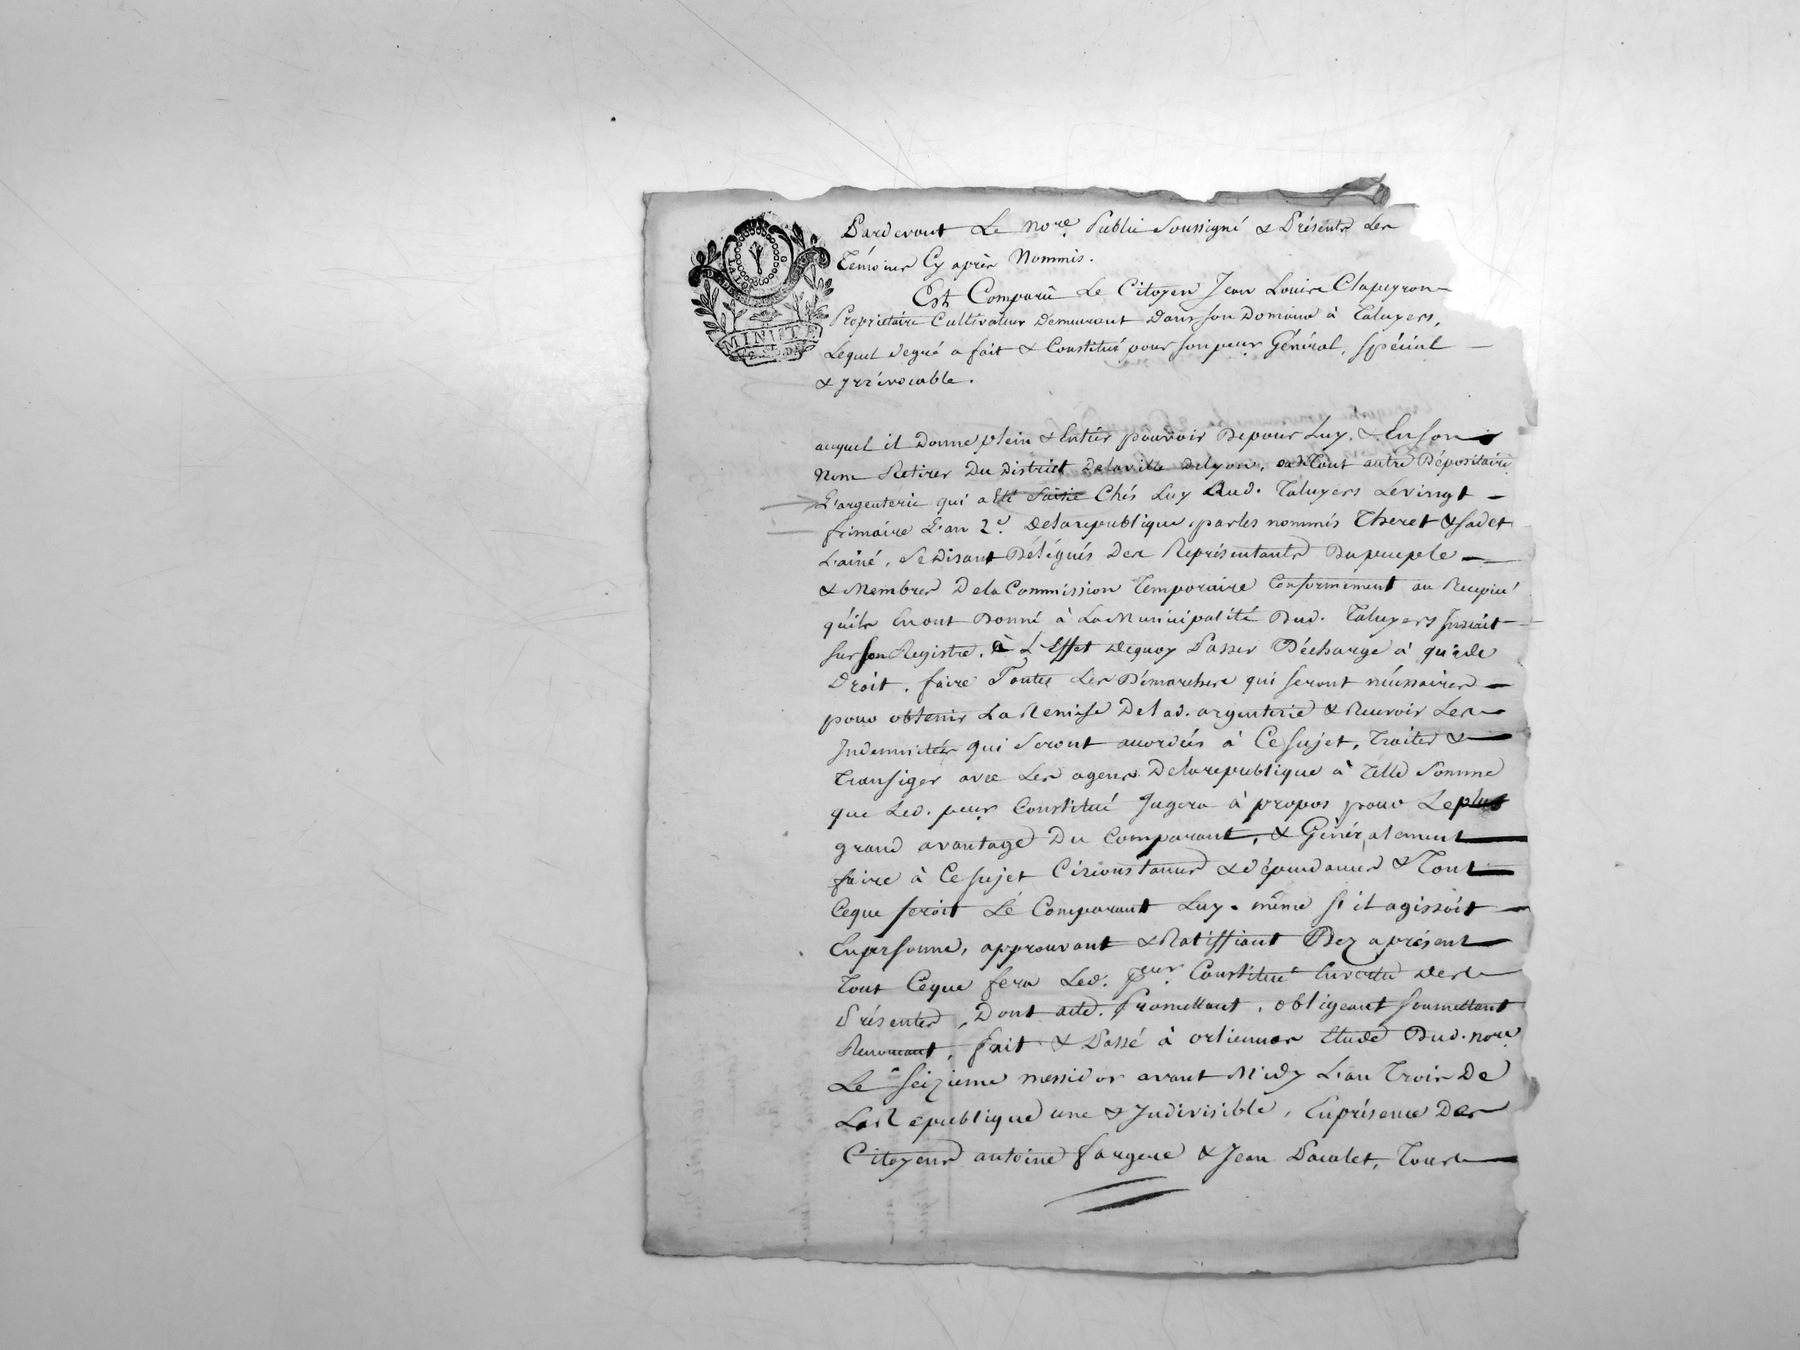 MINIST
Pardevant Le no.re Public Soussigné & Présents Les
Témoins Cy après Nommés.
Est Comparû Le Citoyen Jean Louis Clapeyron
Propriétaire Cultivateur Demeurant Dans son Domaine à Taluyers,
Lequel degré a fait & Constitué pour son peur Général, Spécial
& jrrévocable.
auquel il Donne plein & Entier pouvoir De pour Luy, & En son
Nom Retirer Du District De la ville De lyon, ou de tout autre Dépositaire
L'argenterie qui a Eté Saisie Chés Luy Aud. Taluyers Le vingt
frimaire L'an 2.e De la republique, par les nommés Theret & sadet
L'ainé, Se Disant Délégués Des Représentants Du peuple
& Membres De la Commission Temporaire Conformément au Recepicé
qu'ils En ont Donné à La Municipalité Dud. Taluyers Inscrit
Sur son Registre, à L'Effet De quoy Passer Décharge à qui de
Droit, faire Toutes Les Démarches qui seront nécessaires
pour obtenir La Remise De lad. argenterie & Recevoir Les
Indemnités qui Seront accordées à Ce sujet, Traiter &
Transiger avec Les agens De la republique à Telle Somme
que Led. peur Constitué Jugera à propos pour Le plus
grand avantage Du Comparant, & Généralement
faire à Ce sujet Circonstances & dépendances & Tout
Ce que feroit Lé Comparant Luy-même si il agissoit
En personne, approuvant & Ratiffiant Dez a présent
Tout Ceque fera Led. peur Constitué En vertu des
Présentes, Dont acte. Promettant, obligeant Soumettant
Renonçant, fait & Passé à orlienas Etude Dud. no.re
Le Seizieme messidor avant Midy L'an Trois De
La République une & Indivisible, En présence Des
Citoyens antoine fargere & Jean Paulet, Tous